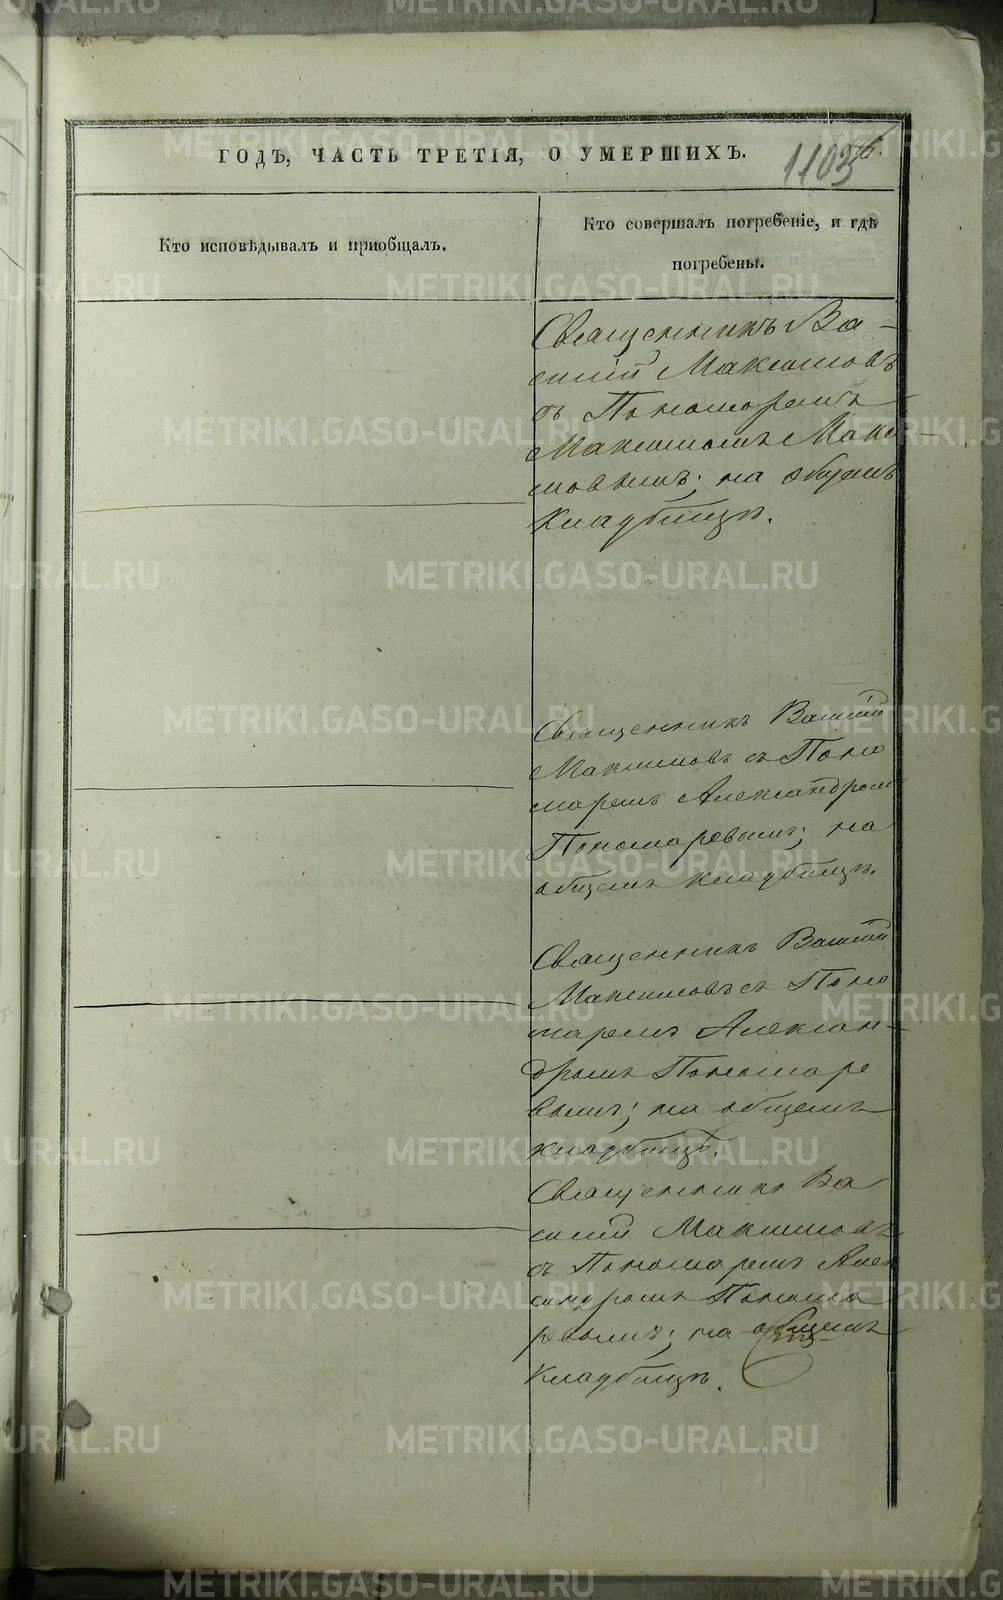 ГОДЪ, ЧАСТЬ ТРЕТІЯ, О УМЕРШИХЪ.
1103
Кто исповѣдывалъ и приобщалъ.
Кто совершалъ погребеніе, и гдѣ
погребены.
Священникъ Ва-
силій Максимовъ
съ Пономоремъ
Максимомъ Макси-
мовымъ; на общемъ
кладбищѣ.
Священникъ Василій
Максимовъ съ Поно
маремъ Александромъ
Пономаревымъ; на
общемъ кладбищѣ.
Священникъ Василій
Максимовъ съ Поно
маремъ Алексан-
дромъ Пономаре
вымъ; на общемъ
кладбищѣ.
Священникъ Ва
силій Максимовъ
съ Пономаремъ Алек
сандромъ Понома
ревымъ; на общемъ
кладбищѣ.
METRIKI.GASO-URAL.RU